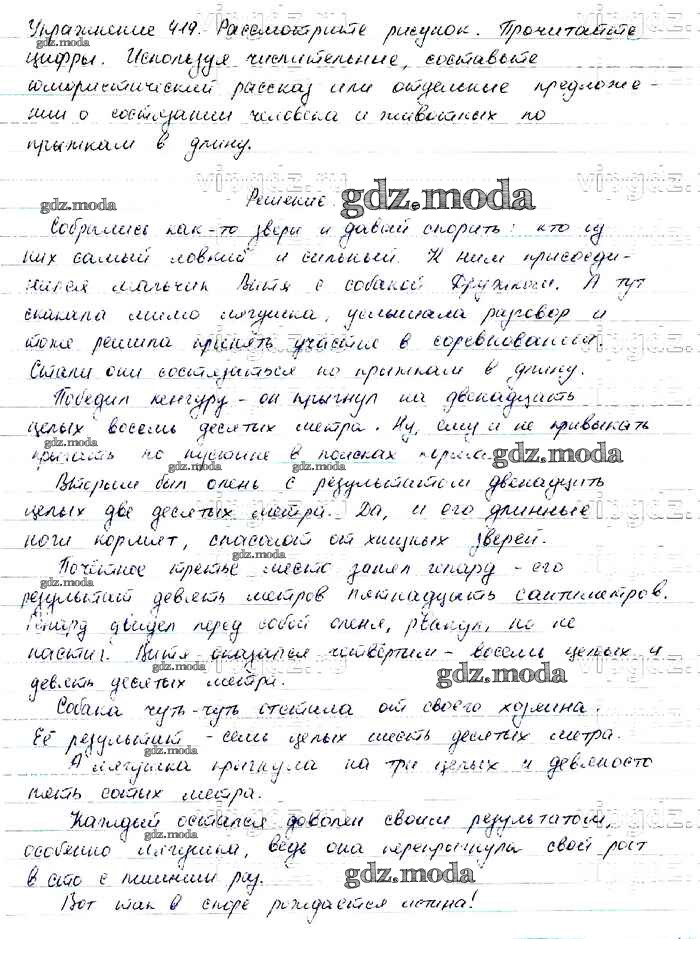 Упражнение 419. Рассмотрите рисунок. Прочитайте
цифры. Используя числительные, составьте
юмористический рассказ или отдельные предложе-
ния о состязании человека и животных по
прыжкам в длину.
Решение.
gdz.moda
Собрались как-то звери и давай спорить: кто из
них самый ловкий и сильный. К ним присоеди-
нился мальчик Витя с собакой Дружком. А тут
скакала мимо лягушка, услышала разговор и
тоже решила принять участие в соревновании.
Стали они состязаться по прыжкам в длину.
Победил кенгуру - он прыгнул на двенадцать
целых восемь десятых метра. Ну, ему и не привыкать
прыгать по пустыне в поисках корма.
gdz.moda
Вторым был олень с результатом двенадцать
целых две десятых метра. Да, и его длинные
ноги кормят, спасают от хищных зверей.
Почётное третье место занял гепард - его
результат девять метров пятнадцать сантиметров.
Гепард увидел перед собой оленя, рванул, но не
настиг. Витя оказался четвёртым - восемь целых и
девять десятых метра.
gdz.moda
Собака чуть-чуть отстала от своего хозяина.
Её результат - семь целых шесть десятых метра.
А лягушка прыгнула на три целых и девяносто
пять сотых метра.
Каждый остался доволен своим результатом,
особенно лягушка, ведь она перепрыгнула свой рост
в сто с лишним раз.
gdz.moda
Вот так в споре рождается истина!